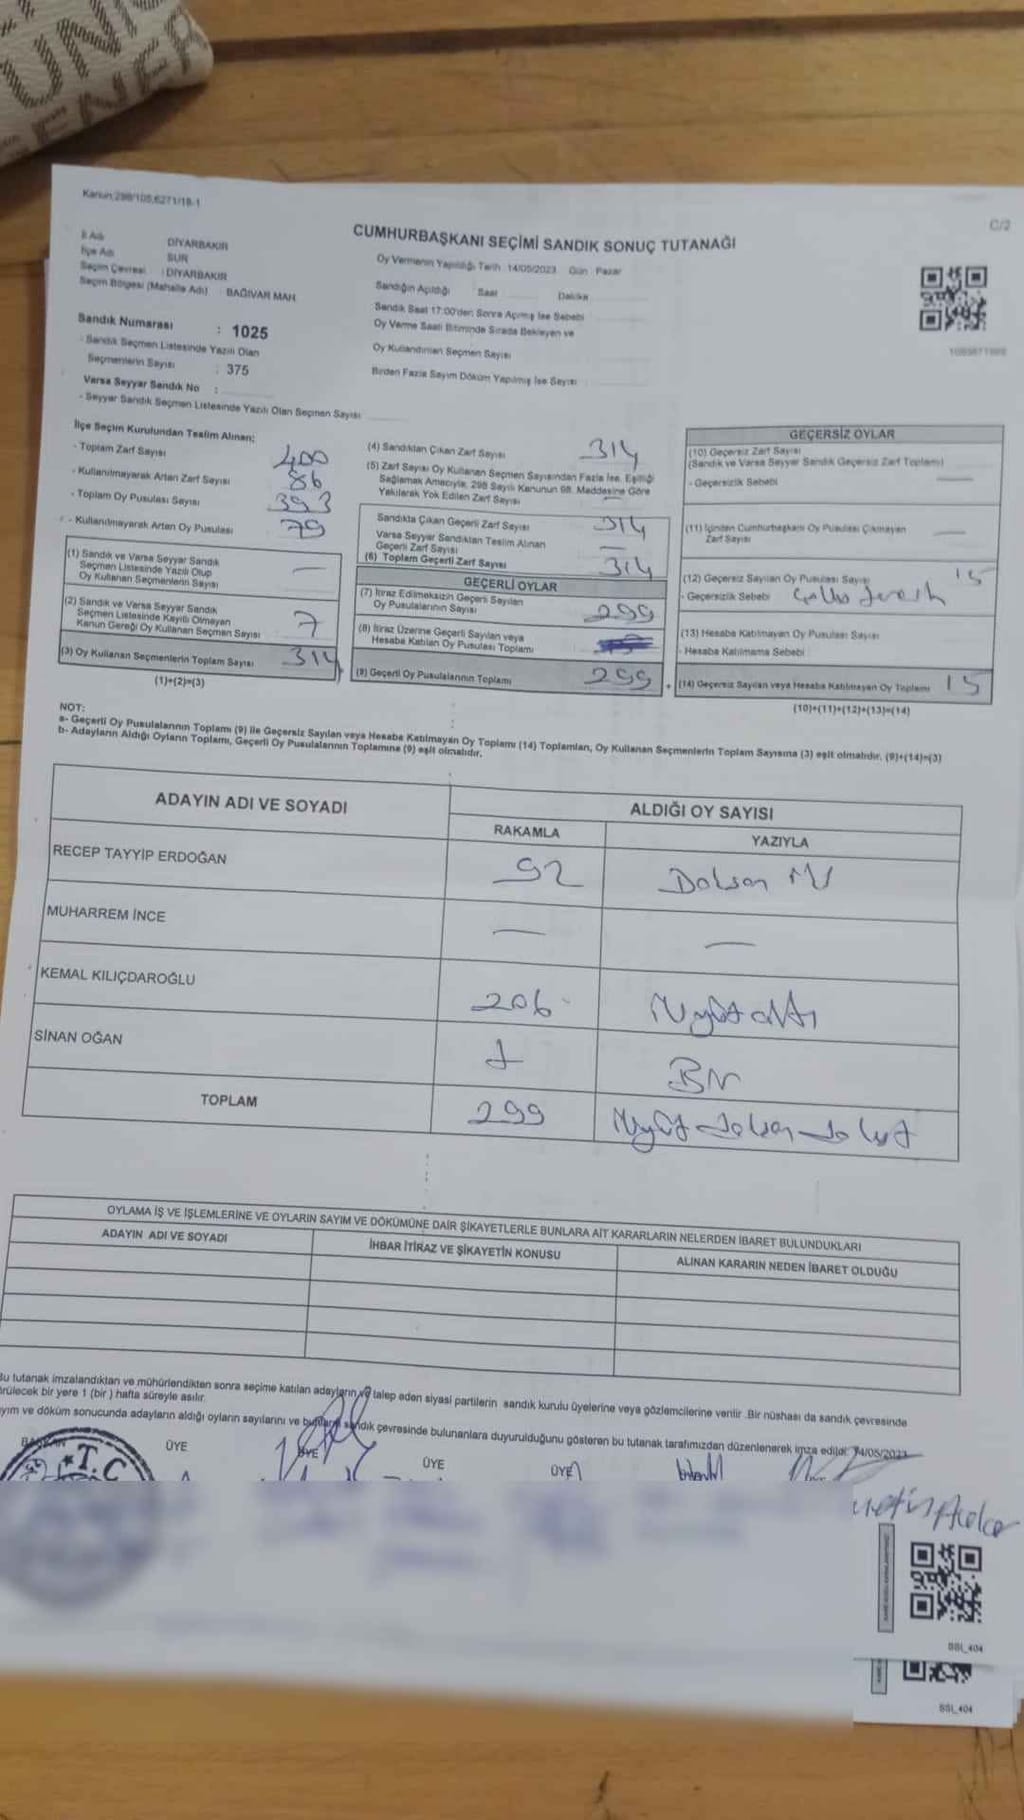 Kanun:298/105,6271/18-1
C/2
CUMHURBAŞKANI SEÇİMİ SANDIK SONUÇ TUTANAĞI
İl Adı DİYARBAKIR
İlçe Adı SUR
Seçim Çevresi : DİYARBAKIR
Seçim Bölgesi (Mahalle Adı) : BAĞIVAR MAH
Sandık Numarası : 1025
- Sandık Seçmen Listesinde Yazılı Olan
Seçmenlerin Sayısı : 375
Varsa Seyyar Sandık No :
- Seyyar Sandık Seçmen Listesinde Yazılı Olan Seçmen Sayısı
Oy Vermenin Yapıldığı Tarih 14/05/2023 Gün Pazar
Sandığın Açıldığı Saat Dakika
Sandık Saat 17:00'den Sonra Açılmış İse Sebebi
Oy Verme Saati Bitiminde Sırada Bekleyen ve
Oy Kullandırılan Seçmen Sayısı
Birden Fazla Sayım Döküm Yapılmış İse Sayısı
İlçe Seçim Kurulundan Teslim Alınan;
- Toplam Zarf Sayısı 400
- Kullanılmayarak Artan Zarf Sayısı 86
- Toplam Oy Pusulası Sayısı 393
- Kullanılmayarak Artan Oy Pusulası 79
(1) Sandık ve Varsa Seyyar Sandık
Seçmen Listesinde Yazılı Olup
Oy Kullanan Seçmenlerin Sayısı —
(2) Sandık ve Varsa Seyyar Sandık
Seçmen Listesinde Kayıtlı Olmayan
Kanun Gereği Oy Kullanan Seçmen Sayısı 7
(3) Oy Kullanan Seçmenlerin Toplam Sayısı 314
(1)+(2)=(3)
(4) Sandıktan Çıkan Zarf Sayısı 314
(5) Zarf Sayısı Oy Kullanan Seçmen Sayısından Fazla İse, Eşitliği
Sağlamak Amacıyla, 298 Sayılı Kanunun 98. Maddesine Göre
Yakılarak Yok Edilen Zarf Sayısı —
Sandıkta Çıkan Geçerli Zarf Sayısı 314
Varsa Seyyar Sandıktan Teslim Alınan
Geçerli Zarf Sayısı —
(6) Toplam Geçerli Zarf Sayısı 314
GEÇERLİ OYLAR
(7) İtiraz Edilmeksizin Geçerli Sayılan
Oy Pusulalarının Sayısı 299
(8) İtiraz Üzerine Geçerli Sayılan veya
Hesaba Katılan Oy Pusulası Toplamı
(9) Geçerli Oy Pusulalarının Toplamı 299
GEÇERSİZ OYLAR
(10) Geçersiz Zarf Sayısı
(Sandık ve Varsa Seyyar Sandık Geçersiz Zarf Toplamı)
- Geçersizlik Sebebi —
(11) İçinden Cumhurbaşkanı Oy Pusulası Çıkmayan
Zarf Sayısı —
(12) Geçersiz Sayılan Oy Pusulası Sayısı 15
- Geçersizlik Sebebi
(13) Hesaba Katılmayan Oy Pusulası Sayısı
- Hesaba Katılmama Sebebi
+ (14) Geçersiz Sayılan veya Hesaba Katılmayan Oy Toplamı 15
(10)+(11)+(12)+(13)=(14)
NOT:
a- Geçerli Oy Pusulalarının Toplamı (9) ile Geçersiz Sayılan veya Hesaba Katılmayan Oy Toplamı (14) Toplamları, Oy Kullanan Seçmenlerin Toplam Sayısına (3) eşit olmalıdır. (9)+(14)=(3)
b- Adayların Aldığı Oyların Toplamı, Geçerli Oy Pusulalarının Toplamına (9) eşit olmalıdır.
ADAYIN ADI VE SOYADI
ALDIĞI OY SAYISI
RAKAMLA YAZIYLA
RECEP TAYYİP ERDOĞAN 92
MUHARREM İNCE — —
KEMAL KILIÇDAROĞLU 206
SİNAN OĞAN 1
TOPLAM 299
OYLAMA İŞ VE İŞLEMLERİNE VE OYLARIN SAYIM VE DÖKÜMÜNE DAİR ŞİKAYETLERLE BUNLARA AİT KARARLARIN NELERDEN İBARET BULUNDUKLARI
ADAYIN ADI VE SOYADI İHBAR İTİRAZ VE ŞİKAYETİN KONUSU ALINAN KARARIN NEDEN İBARET OLDUĞU
Bu tutanak imzalandıktan ve mühürlendikten sonra seçime katılan adayların ve talep eden siyasi partilerin sandık kurulu üyelerine veya gözlemcilerine verilir. Bir nüshası da sandık çevresinde
görülecek bir yere 1 (bir) hafta süreyle asılır.
sayım ve döküm sonucunda adayların aldığı oyların sayılarını ve bunların sandık çevresinde bulunanlara duyurulduğunu gösteren bu tutanak tarafımızdan düzenlenerek imza edildi. 14/05/2023
BAŞKAN ÜYE ÜYE ÜYE ÜYE
T.C
SSI_404
SSI_404